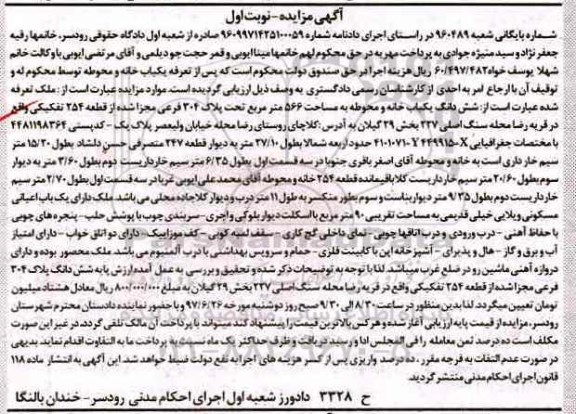 آگهی مزایده - نوبت اول
شماره بایگانی شعبه ۹۶۰۴۸۹ در راستای اجرای دادنامه شماره ۹۶۰۹۹۷۱۴۲۵۱۰۰۰۵۹ صادره از شعبه اول دادگاه حقوقی رودسر، خانمها رقیه
جعفر نژاد و سید منیژه جوادی به پرداخت مهریه در حق محکوم لهم خانمها مینا ایوبی و قمر حجت جو دیلمی و آقای مرتضی ایوبی با وکالت خانم
شهلا یوسف خواه ۶۰/۴۹۷/۴۸۲ ریال هزینه اجرا در حق صندوق دولت محکوم است که پس از تعرفه یکباب خانه و محوطه توسط محکوم له و
توقیف آن با ارجاع امر به احدی از کارشناسان رسمی دادگستری به وصف ذیل ارزیابی گردیده است. موارد مزایده عبارت است از: ملک تعرفه
شده عبارت است از: شش دانگ یکباب خانه و محوطه به مساحت ۵۶۶ متر مربع تحت پلاک ۳۰۴ فرعی مجزا شده از قطعه ۲۵۴ تفکیکی واقع
در قریه رضا محله سنگ اصلی ۲۲۷ بخش ۲۹ گیلان به آدرس: کلاچای روستای رضا محله خیابان ولیعصر پلاک یک - کدپستی ۴۴۸۱۱۹۸۳۶۴
با مختصات جغرافیایی ۴۱۰۱۰۷۱- Y ۴۴۹۹۱۵-X حدود اربعه شمالا بطول ۳۷/۱۰ متر به دیوار قطعه ۲۴۷ متصرفی حسن دلشاد بطول ۱۵/۲۰ متر
سیم خارداری است به خانه و محوطه آقای اصغر باقری جنوبا در سه قسمت اول بطول ۶/۳۵ متر سیم خاردار یست دوم بطول ۳/۶۰ متر به دیوار
سوم بطول ۲۰/۶۰ متر سیم خاردار یست کلا باقیمانده قطعه ۲۵۴ خانه و محوطه آقای محمد علی ایوبی غربا در سه قسمت اول بطول ۲/۷۰ متر سیم
خاردار یست دوم بطول ۹/۳۵ متر دیوار بناست و سوم بطور منکسر به طول ۱۱ متر درب و دیوار کلا جاده محلی می باشد. ملک دارای یک باب اعیانی
مسکونی ویلایی خیلی قدیمی به مساحت تقریبی ۹۰ متر مربع با اسکلت دیوار بلوکی و آجری - سربندی چوب با پوشش حلب - پنجره های چوبی
با حفاظ آهنی - درب ورودی و درب اتاقها چوبی - نمای داخلی گچ کاری - سقف لمبه کوبی - کف موزاییک - دارای دو اتاق خواب - دارای امتیاز
آب و برق و گاز - هال و پذیرای - آشپزخانه اپن با کابینت فلزی - حمام و سرویس بهداشتی با درب آلمنیوم می باشد. ملک محصور بوده و دارای
دروازه آهنی ماشین رو در ضلع غرب میباشد. لذا با توجه به توضیحات ذکر شده و تحقیق و بررسی به عمل آمده ارزش پایه شش دانگ پلاک ۳۰۴
فرعی مجزا شده از قطعه ۲۵۴ تفکیکی واقع در قریه رضا محله سنگ اصلی ۲۲۷ بخش ۲۹ گیلان به مبلغ ۸۰۰/۰۰۰/۰۰۰ ریال معادل هشتاد میلیون
تومان تعیین میگردد. لذا بدین منظور در ساعت ۸/۳۰ الی ۹/۳۰ صبح روز دوشنبه مورخه ۹۷/۶/۲۶ و با حضور نماینده دادستان محترم شهرستان
رودسر، مزایده از قیمت پایه ارزیابی آغاز شده و هر کس بالاترین قیمت را پیشنهاد کند میتواند با پرداخت آن مالک تلقی گردد. در غیر این صورت
مکلف است ده درصد ثمن معامله را فی المجلس ادا و رسید دریافت و ظرف حداکثر یک ماه نسبت به پرداخت ما به التفاوت اقدام نماید. بدیهی
در صورت عدم التفات به فرجه مقرر، ده درصد واریزی پس از کسر هزینه های اجرا به نفع دولت ضبط خواهد شد. این آگهی به انتشار ماده ۱۱۸
قانون اجرای احکام مدنی منتشر گردید.
ح ۳۳۲۸ دادورز شعبه اول اجرای احکام مدنی رودسر - خندان پالنگا